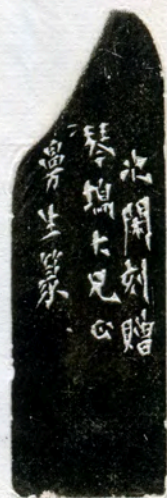 次閑刻贈
琴塢大兄
曼生篆